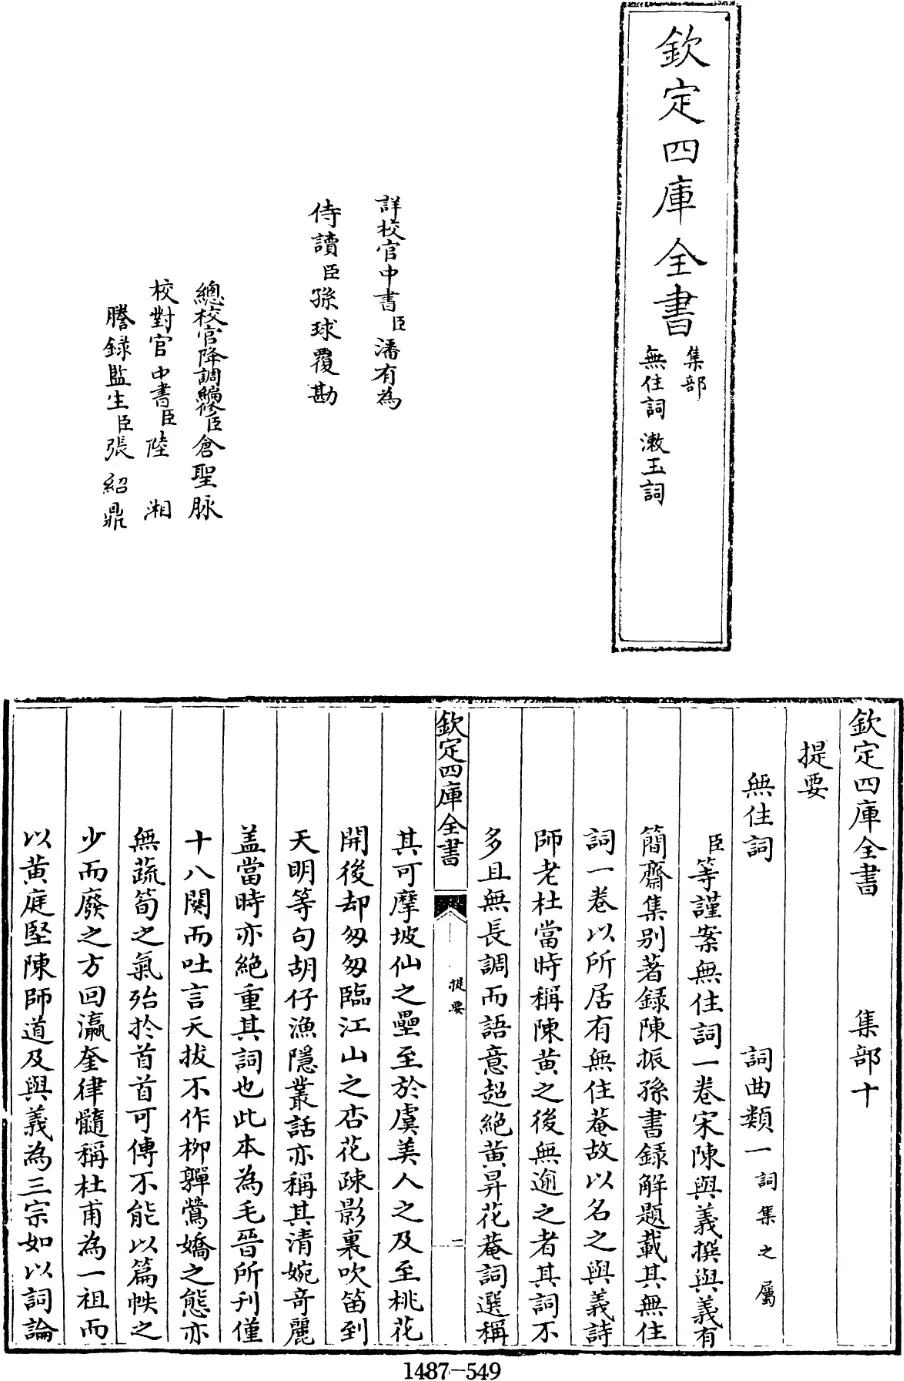 欽定四庫全書
集部
無住詞 漱玉詞
詳校官中書臣潘有為
侍讀臣孫球覆勘
總校官降調編修臣倉聖脉
校對官中書臣陸湘
謄錄監生臣張紹鼎
欽定四庫全書 集部十
提要
無住詞 詞曲類一 詞集之屬
臣等謹案無住詞一卷宋陳與義撰與義有
簡齋集别著錄陳振孫書録解題載其無住
詞一卷以所居有無住菴故以名之與義詩
師老杜當時稱陳黄之後無逾之者其詞不
多且無長調而語意超絶黄昇花菴詞選稱
欽定四庫全書
提要
二
其可摩坡仙之壘至於虞美人之及至桃花
開後却匆匆臨江山之杏花疎影裏吹笛到
天明等句胡仔漁隱叢話亦稱其清婉奇麗
盖當時亦絶重其詞也此本為毛晉所刊僅
十八闋而吐言天拔不作柳嚲鶯嬌之態亦
無蔬筍之氣殆於首首可傳不能以篇帙之
少而廢之方回瀛奎律髓稱杜甫為一祖而
以黄庭堅陳師道及與義為三宗如以詞論
1487-549